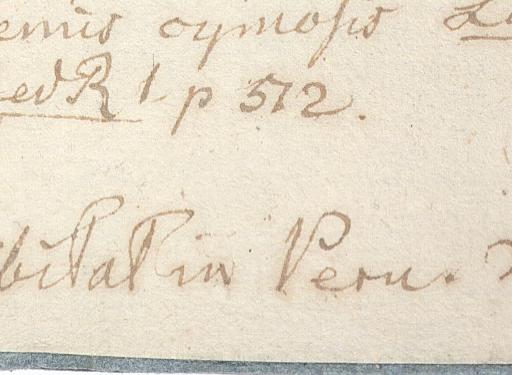 emis cymosis
ed R 1 p 512.
bitat in Peru.